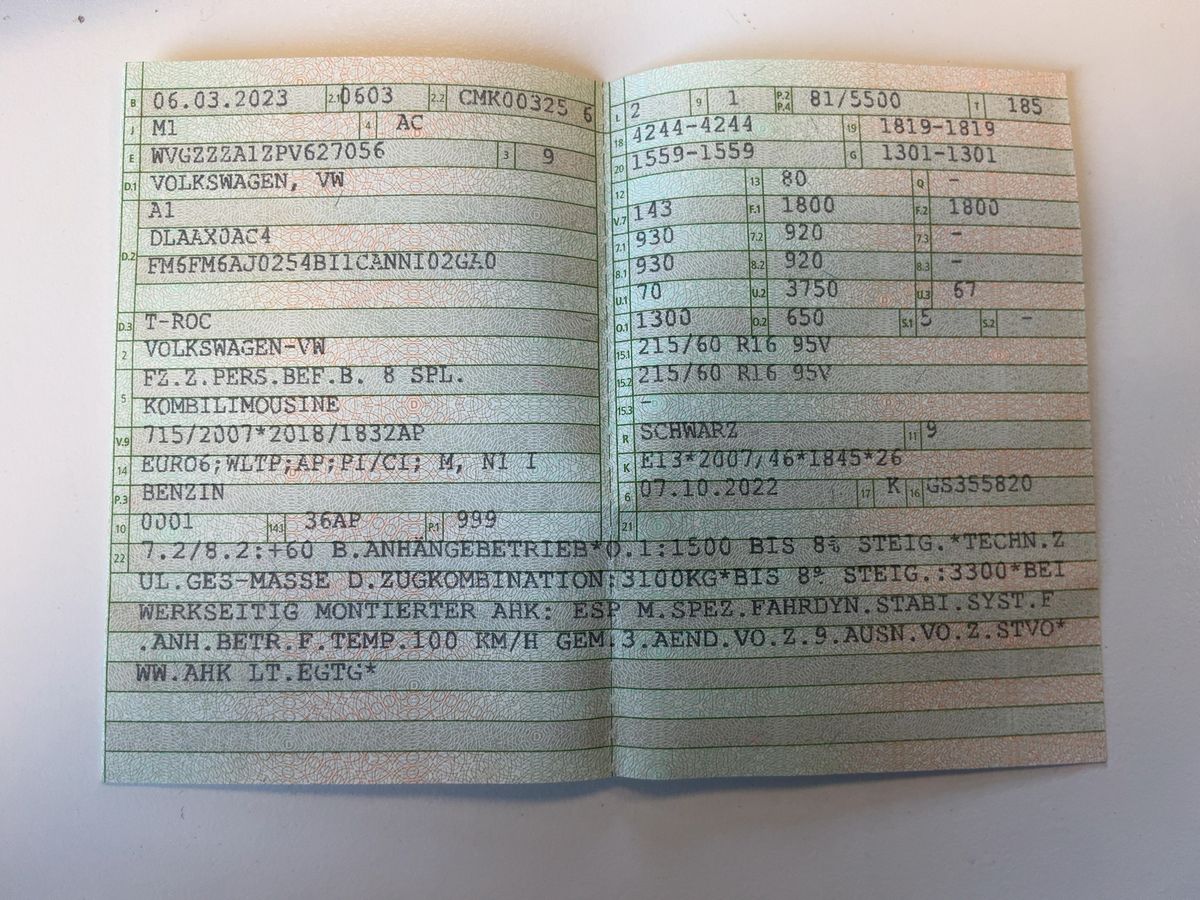 B 06.03.2023 2.1 0603 2.2 CMK00325 6
J M1 4 AC
E WVGZZZA1ZPV627056 3 9
D.1 VOLKSWAGEN, VW
A1
D.2 DLAAX0AC4
FM6FM6AJ0254BI1CANNI02GA0
D.3 T-ROC
2 VOLKSWAGEN-VW
FZ.Z.PERS.BEF.B. 8 SPL.
5 KOMBILIMOUSINE
V.9 715/2007*2018/1832AP
14 EURO6;WLTP;AP;PI/CI; M, N1 I
P.3 BENZIN
10 0001 14.1 36AP P.1 999
L 2 9 1 P.2 P.4 81/5500 T 185
18 4244-4244 19 1819-1819
20 1559-1559 G 1301-1301
12 13 80 Q -
V.7 143 F.1 1800 F.2 1800
7.1 930 7.2 920 7.3 -
8.1 930 8.2 920 8.3 -
U.1 70 U.2 3750 U.3 67
O.1 1300 O.2 650 S.1 5 S.2 -
15.1 215/60 R16 95V
15.2 215/60 R16 95V
15.3 -
R SCHWARZ 11 9
K E13*2007/46*1845*26
6 07.10.2022 17 K 16 GS355820
21
22 7.2/8.2:+60 B.ANHÄNGEBETRIEB*O.1:1500 BIS 8% STEIG.*TECHN.Z
UL.GES-MASSE D.ZUGKOMBINATION:3100KG*BIS 8% STEIG.:3300*BEI
WERKSEITIG MONTIERTER AHK: ESP M.SPEZ.FAHRDYN.STABI.SYST.F
.ANH.BETR.F.TEMP.100 KM/H GEM.3.AEND.VO.Z.9.AUSN.VO.Z.STVO*
WW.AHK LT.EGTG*